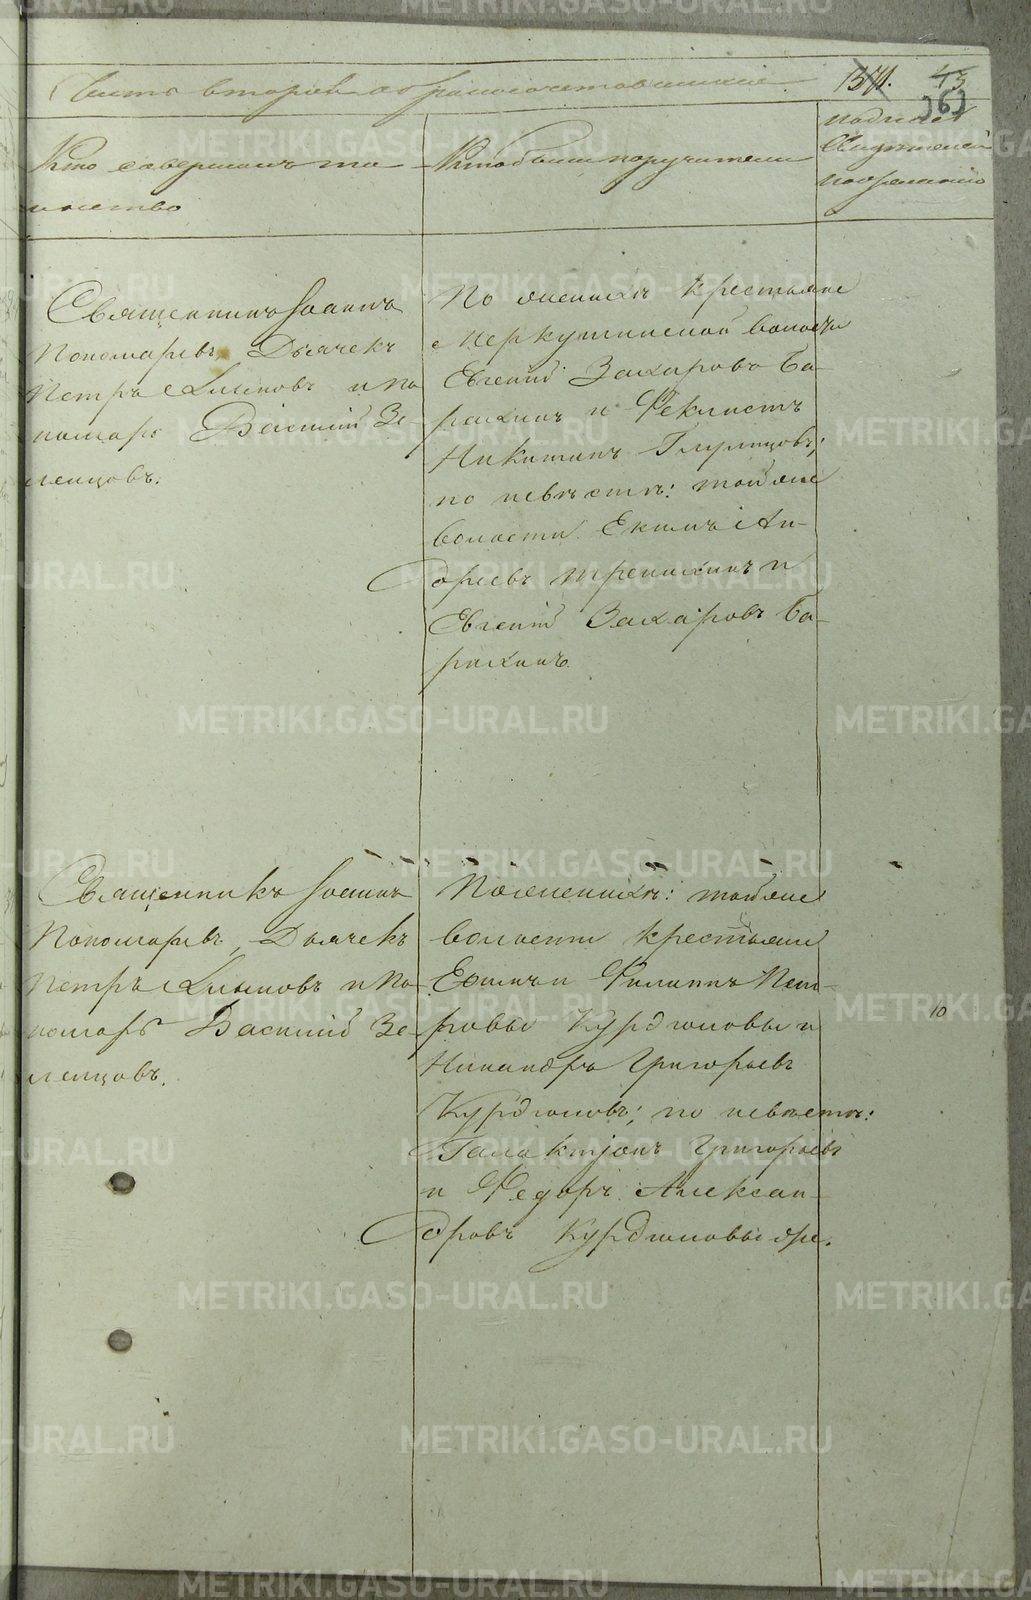 Часть вторая о бракосочетавшихся.
43
Кто совершалъ та-
инство
Кто были поручители
Подписи
Свидетелей
по желанію
Священникъ Іоаннъ
Пономаревъ, Дьячекъ
Петръ и по-
номарь Василій Зе-
ленцовъ.
По женихѣ крестьяне
Меркушинской волости
Евгеній Захаровъ Ба-
рахинъ и Феклистъ
Никитинъ
по невѣстѣ: той же
волости Екимъ Ан-
дреевъ и
Евгеній Захаровъ Ба-
рахинъ
Священникъ Іоаннъ
Пономаревъ, Дьячекъ
Петръ и По-
номарь Василій Зе-
ленцовъ.
По женихѣ: той же
волости крестьяне
Ефимъ и Филиппъ Пет-
ровы Курдюковы и
Никандръ Григорьевъ
Курдюковъ; по невѣстѣ:
Галактіонъ Григорьевъ
и Федоръ Алексан-
дровъ Курдюковы же.
10
METRIKI.GASO-URAL.RU